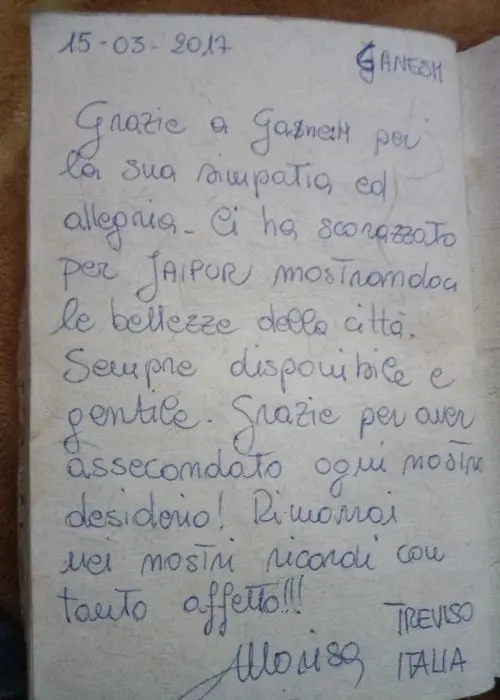 15-03-2017
GANESH
Grazie a Ganesh per
la sua simpatia ed
allegria. Ci ha scorazzato
per JAIPUR mostrandoci
le bellezze della città.
Sempre disponibile e
gentile. Grazie per aver
assecondato ogni nostro
desiderio! Rimarrai
nei nostri ricordi con
tanto affetto!!!
Marisa
TREVISO
ITALIA